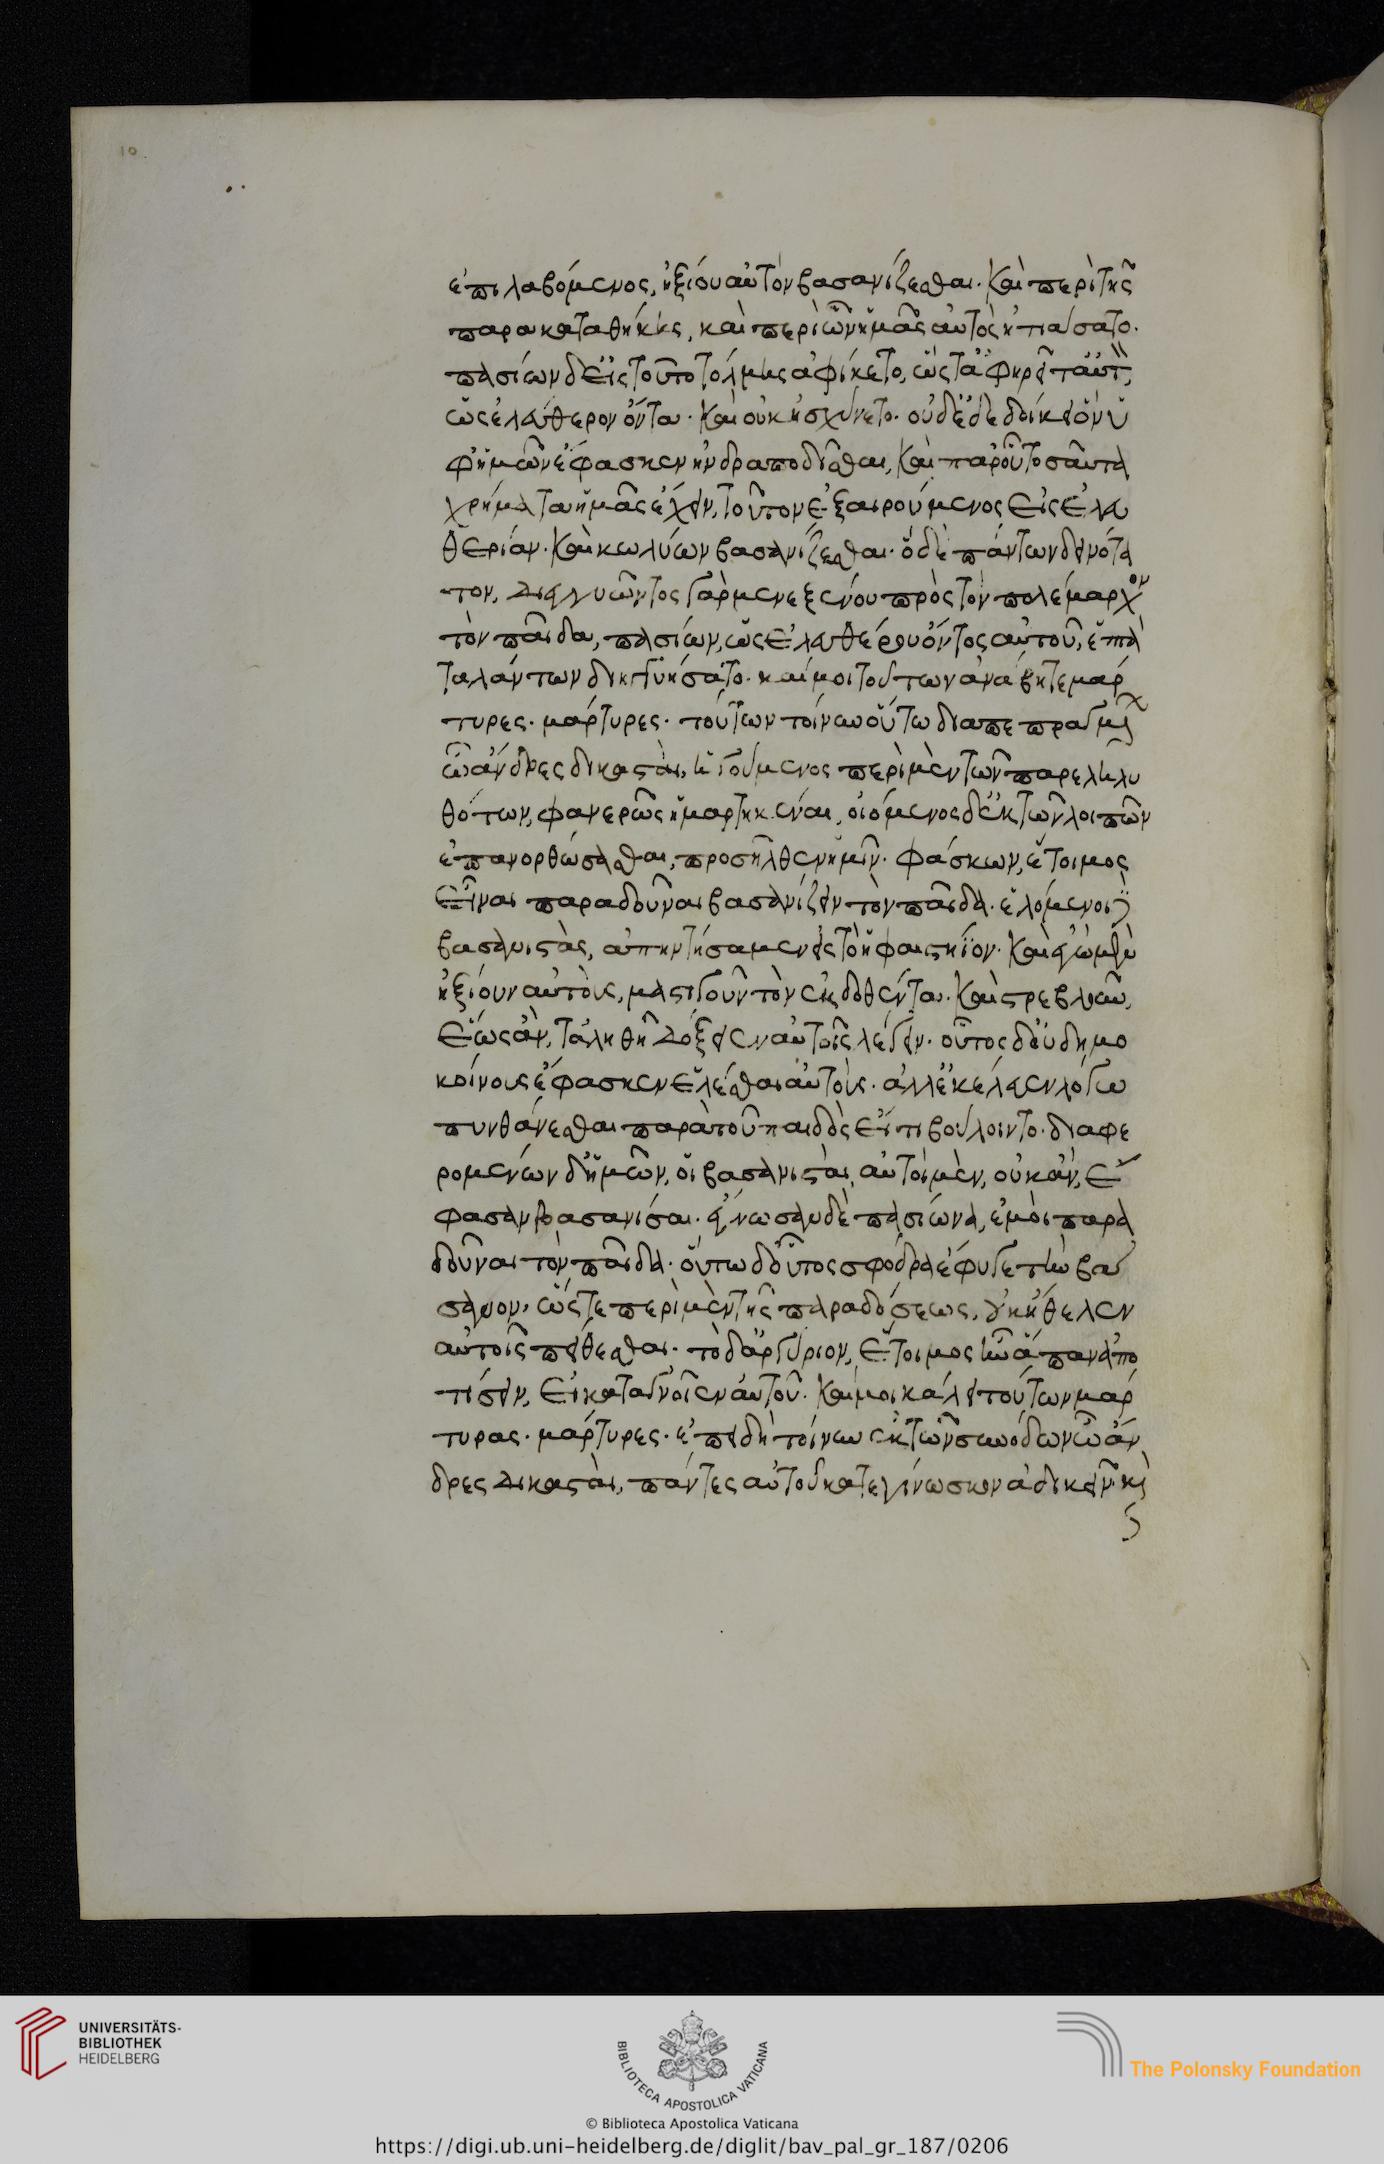 10
ἐπιλαβόμενος, ἠξίουν αὐτὸν βασανίζεσθαι. καὶ περὶ τῆς
παρακαταθήκης, καὶ περὶ ὧν ἡμᾶς αὐτὸς ᾐτιάσατο.
πασίων δ' εἰς τοῦτο τόλμης ἀφίκετο, ὥστ' ἀφηρεῖτ' αὐτ,
ὡς ἐλεύθερον ὄντα. καὶ οὐκ ᾐσχύνετο. οὐδ' ἐδεδοίκει ὃν ὑ
φ' ἡμῶν ἔφασκεν ἠνδραποδίσθαι, καὶ παρ' οὗ τοσαῦτα
χρήματα ἡμᾶς ἔχειν, τοῦτον ἐξαιρούμενος εἰς ἐλευ
θερίαν. καὶ κωλύων βασανίζεσθαι. ὃ δὲ πάντων δεινότα
τον, διεγγυῶντος γὰρ μενεξένου πρὸς τὸν πολέμαρχον
τὸν παῖδα, πασίων, ὡς ἐλευθέρου ὄντος αὐτοῦ, ἑπτὰ
ταλάντων διηγγυήσατο. καί μοι τούτων ἀνάβητε μάρ
τυρες. μάρτυρες. τούτων τοίνυν οὕτω διαπεπραγμ
ὦ ἄνδρες δικασταὶ, ἡγούμενος περὶ μὲν τῶν παρεληλυ
θότων, φανερῶς ἡμαρτηκέναι, οἰόμενος δ' ἐκ τῶν λοιπῶν
ἐπανορθώσασθαι, προσῆλθεν ἡμῖν. φάσκων, ἕτοιμος
εἶναι παραδοῦναι βασανίζειν τὸν παῖδα. ἑλόμενοι δὲ
βασανιστὰς, ἀπηντήσαμεν εἰς τὸ ἡφαιστήϊον. καὶ ἐγὼ μὲν
ἠξίουν αὐτοὺς, μαστιγοῦν τὸν ἐκδοθέντα. καὶ στρεβλοῦν,
ἕως ἂν, τἀληθῆ δόξειεν αὐτοῖς λέγειν. οὗτος δ' οὐ δημο
κοίνους ἔφασκεν ἑλέσθαι αὐτοὺς. ἀλλ' ἐκέλευεν λόγω
πυνθάνεσθαι παρὰ τοῦ παιδὸς εἴ τι βούλοιντο. διαφε
ρομένων δ' ἡμῶν, οἱ βασανισταὶ, αὐτοὶ μὲν, οὐκ ἂν, ἔ
φασαν βασανίσαι. ἔγνωσαν δὲ πασίωνα, ἐμοὶ παρα
δοῦναι τὸν παῖδα. οὕτω δ' οὗτος σφόδρα ἔφυγε τὴν βά
σανον, ὥστε περὶ μὲν τῆς παραδόσεως, οὐκ ἤθελεν
αὐτοῖς πείθεσθαι. τὸ δ' ἀργύριον, ἕτοιμος ἦν ἅπαν ἀπο
τίσειν, εἰ καταγνοῖεν αὐτοῦ. καί μοι κάλει τούτων μάρ
τυρας. μάρτυρες. ἐπειδὴ τοίνυν ἐκ τῶν συνόδων ὦ ἄν
δρες δικασταὶ, πάντες αὐτοῦ κατεγίνωσκον ἀδικεῖν. κὶ
UNIVERSITÄTS-
BIBLIOTHEK
HEIDELBERG
BIBLIOTECA APOSTOLICA VATICANA
© Biblioteca Apostolica Vaticana
The Polonsky Foundation
https://digi.ub.uni-heidelberg.de/diglit/bav_pal_gr_187/0206